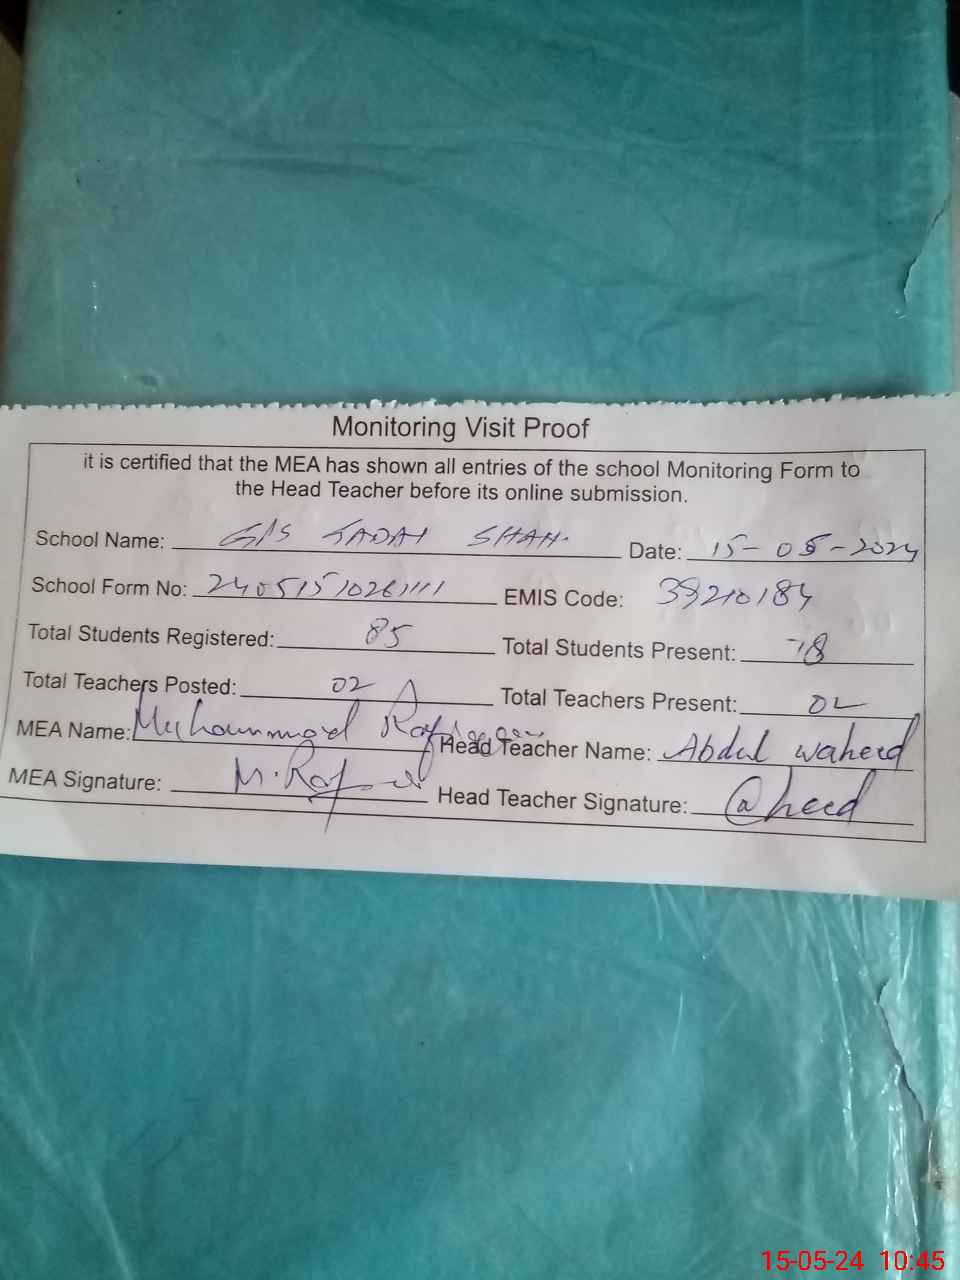 Monitoring Visit Proof
it is certified that the MEA has shown all entries of the school Monitoring Form to
the Head Teacher before its online submission.
School Name: G/S JADAI SHAH. Date: 15-05-2024
School Form No: 24051510261111 EMIS Code: 39210184
Total Students Registered: 85 Total Students Present: 78
Total Teachers Posted: 02 Total Teachers Present: 02
MEA Name: Muhammad Head Teacher Name: Abdul waheed
MEA Signature: Head Teacher Signature: @heed
15-05-24 10:45